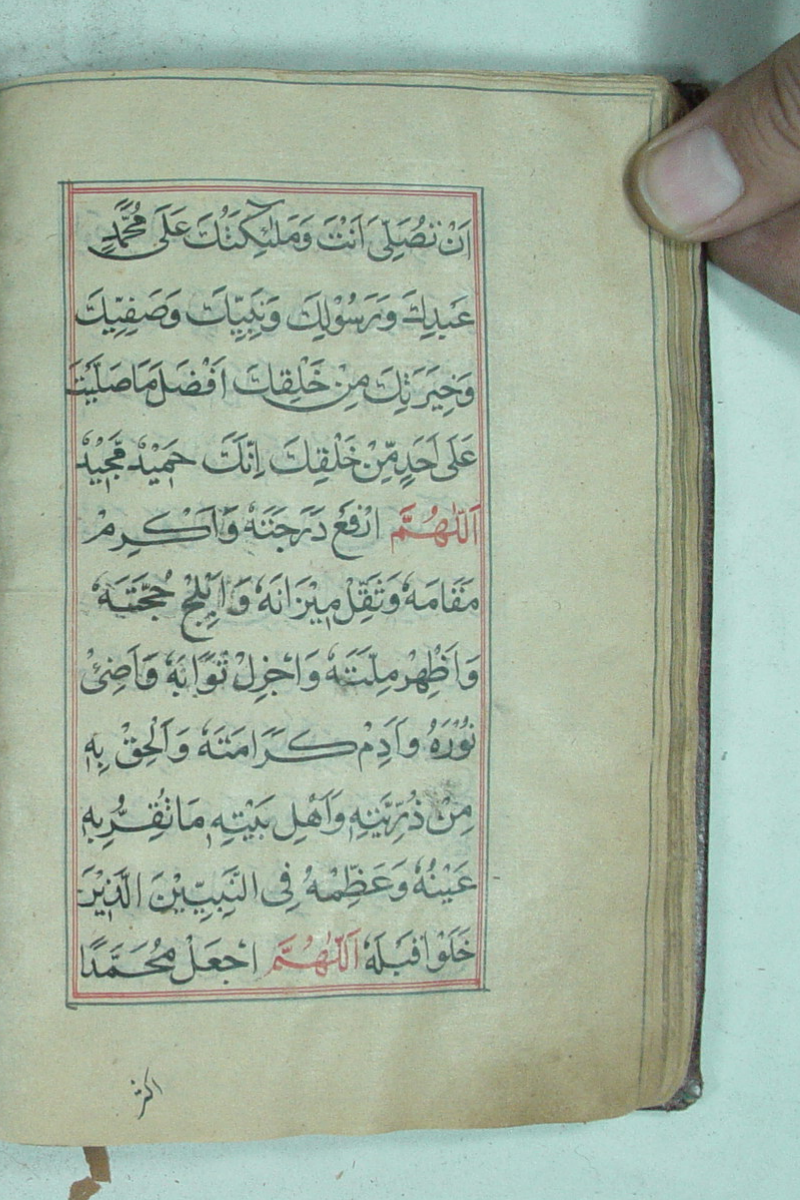 اَنْ تُصَلِّىَ اَنْتَ وَمَلٰئِكَتُكَ عَلٰى مُحَمَّدٍ
عَبْدِكَ وَرَسُوْلِكَ وَنَبِيِّكَ وَصَفِيِّكَ
وَخِيَرَتِكَ مِنْ خَلْقِكَ اَفْضَلَ مَا صَلَّيْتَ
عَلٰى اَحَدٍ مِّنْ خَلْقِكَ اِنَّكَ حَمِيْدٌ مَّجِيْدٌ
اَللّٰهُمَّ ارْفَعْ دَرَجَتَهٗ وَاَكْرِمْ
مَقَامَهٗ وَثَقِّلْ مِيْزَانَهٗ وَاَبْلِجْ حُجَّتَهٗ
وَاَظْهِرْ مِلَّتَهٗ وَاَجْزِلْ ثَوَابَهٗ وَاَضِئْ
نُوْرَهٗ وَاَدِمْ كَرَامَتَهٗ وَاَلْحِقْ بِهٖ
مِنْ ذُرِّيَّتِهٖ وَاَهْلِ بَيْتِهٖ مَا تُقِرُّ بِهٖ
عَيْنُهٗ وَعَظِّمْهُ فِى النَّبِيِّيْنَ الَّذِيْنَ
خَلَوْا قَبْلَهٗ اَللّٰهُمَّ اجْعَلْ مُحَمَّدًا
اكثر